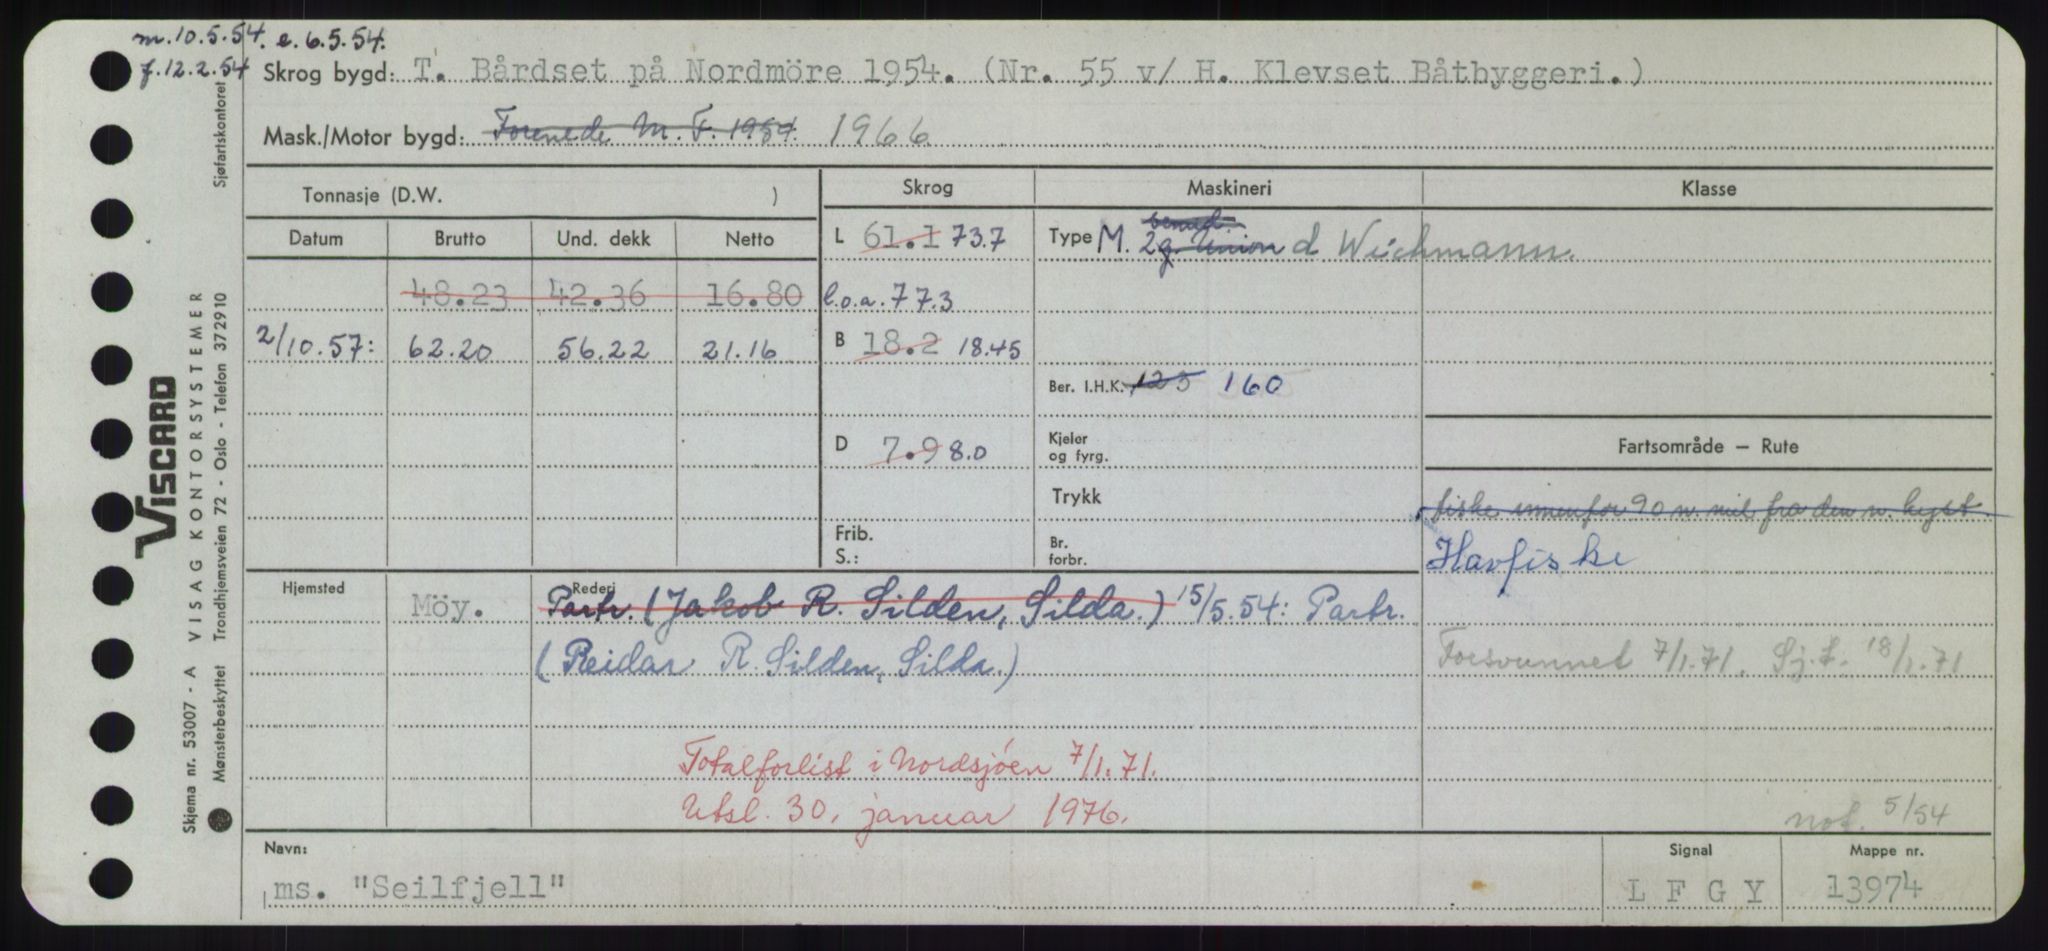 m. 10.5.54. e. 6.5.54.
f. 12.2.54
Skrog bygd: T. Bårdset på Nordmöre 1954. (Nr. 55 v/ H. Klevset Båtbyggeri.)
Mask./Motor bygd: Forenede M. F. 1954. 1966
Tonnasje (D.W. )
Skrog
Maskineri
Klasse
Datum Brutto Und. dekk Netto
L 61.1 73.7
Type M. 2g. Union d Wichmann.
48.23 42.36 16.80
l.o.a. 77.3
2/10.57: 62.20 56.22 21.16
B 18.2 18.45
Ber. I.H.K. 123 160
D 7.9 8.0
Kjeler
og fyrg.
Fartsområde – Rute
Trykk
fiske innenfor 90 n. mil fra den n. kyst.
Frib.
S.:
Br.
forbr.
Havfiske
Hjemsted Möy.
Rederi
Partr. (Jakob R. Silden, Silda.) 15/5.54: Partr.
(Reidar R. Silden, Silda.)
Forsvunnet 7/1.71. Sj.f. 18/1.71
Totalforlist i Nordsjöen 7/1.71.
Utsl. 30. januar 1976.
not. 5/54
Navn:
ms. "Seilfjell"
Signal
L F G Y
Mappe nr.
13974
Sjøfartskontoret
VISCARD
VISAG KONTORSYSTEMER
Skjema nr. 53007 - A
Mønsterbeskyttet Trondhjemsveien 72 - Oslo - Telefon 372910